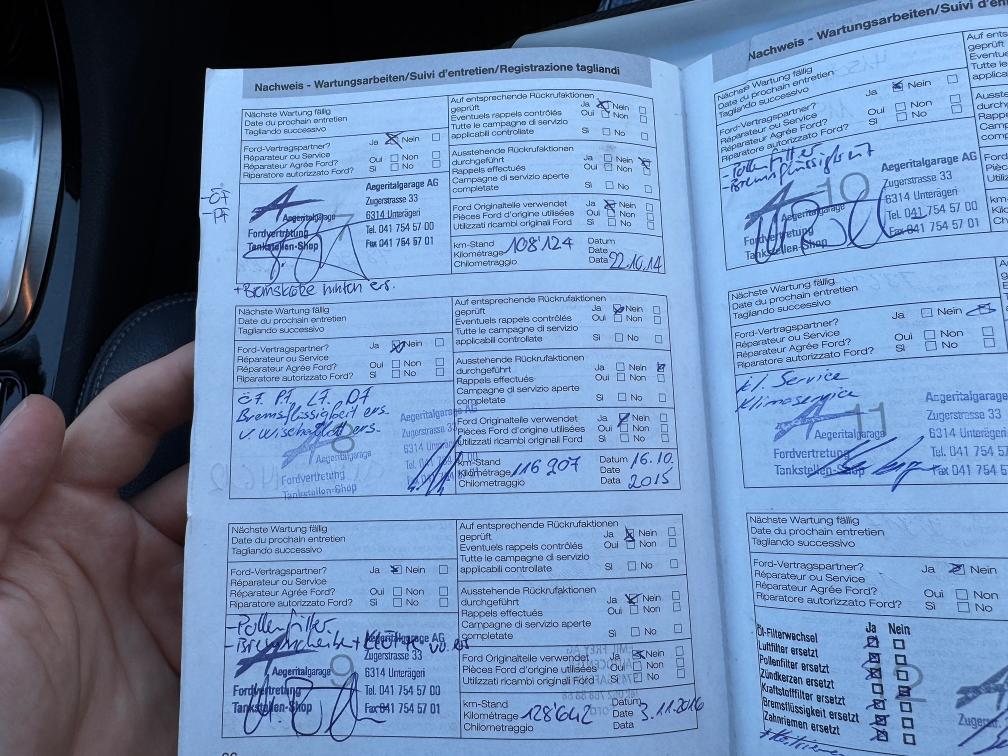 Nachweis - Wartungsarbeiten/Suivi d'entretien/Registrazione tagliandi
Nächste Wartung fällig
Date du prochain entretien
Tagliando successivo
Ford-Vertragspartner? Ja Nein
Réparateur ou Service Oui Non
Réparateur Agrée Ford? Si No
Riparatore autorizzato Ford?
Auf entsprechende Rückrufaktionen
geprüft Ja Nein
Eventuels rappels contrôlés Oui Non
Tutte le campagne di servizio
applicabili controllate Si No
Ausstehende Rückrufaktionen
durchgeführt Ja Nein
Rappels effectués Oui Non
Campagne di servizio aperte
completate Si No
Ford Originalteile verwendet Ja Nein
Pièces Ford d'origine utilisées Oui Non
Utilizzati ricambi originali Ford Si No
km-Stand Datum
Kilométrage 108'124 Date
Chilometraggio Data 22.10.14
-ÖF
-PF
7
Aegeritalgarage AG
Zugerstrasse 33
Aegeritalgarage 6314 Unterägeri
Fordvertretung Tel. 041 754 57 00
Tankstellen-Shop Fax 041 754 57 01
+Bremsklötze hinten ers.
Nächste Wartung fällig
Date du prochain entretien
Tagliando successivo
Ford-Vertragspartner? Ja Nein
Réparateur ou Service Oui Non
Réparateur Agrée Ford? Si No
Riparatore autorizzato Ford?
Auf entsprechende Rückrufaktionen
geprüft Ja Nein
Eventuels rappels contrôlés Oui Non
Tutte le campagne di servizio
applicabili controllate Si No
Ausstehende Rückrufaktionen
durchgeführt Ja Nein
Rappels effectués Oui Non
Campagne di servizio aperte
completate Si No
Ford Originalteile verwendet Ja Nein
Pièces Ford d'origine utilisées Oui Non
Utilizzati ricambi originali Ford Si No
km-Stand Datum 16.10.
Kilométrage 116 207 Date
Chilometraggio Data 2015
ÖF, PF, LF, DF
Bremsflüssigkeit ers.
v. Wischblatt ers.
8
Aegeritalgarage AG
Zugerstrasse 33
Aegeritalgarage 6314
Fordvertretung Tel. 041 754 57 00
Tankstellen-Shop
Nächste Wartung fällig
Date du prochain entretien
Tagliando successivo
Ford-Vertragspartner? Ja Nein
Réparateur ou Service Oui Non
Réparateur Agrée Ford? Si No
Riparatore autorizzato Ford?
Auf entsprechende Rückrufaktionen
geprüft Ja Nein
Eventuels rappels contrôlés Oui Non
Tutte le campagne di servizio
applicabili controllate Si No
Ausstehende Rückrufaktionen
durchgeführt Ja Nein
Rappels effectués Oui Non
Campagne di servizio aperte
completate Si No
Ford Originalteile verwendet Ja Nein
Pièces Ford d'origine utilisées Oui Non
Utilizzati ricambi originali Ford Si No
km-Stand Datum
Kilométrage 128'642 Date 3.11.2016
Chilometraggio Data
-Pollenfilter
-Bremsscheibe +
9
Aegeritalgarage AG
Zugerstrasse 33
Aegeritalgarage 6314 Unterägeri
Fordvertretung Tel. 041 754 57 00
Tankstellen-Shop Fax 041 754 57 01
Nachweis - Wartungsarbeiten/Suivi d'en
Nächste Wartung fällig
Date du prochain entretien
Tagliando successivo
Ford-Vertragspartner? Ja Nein
Réparateur ou Service Oui Non
Réparateur Agrée Ford? Si No
Riparatore autorizzato Ford?
-Pollenfilter
-Bremsflüssigkeit
10
Aegeritalgarage AG
Zugerstrasse 33
Aegeritalgarage 6314 Unterägeri
Fordvertretung Tel. 041 754 57 00
Tankstellen-Shop Fax 041 754 57 01
Nächste Wartung fällig
Date du prochain entretien
Tagliando successivo
Ford-Vertragspartner? Ja Nein
Réparateur ou Service Oui Non
Réparateur Agrée Ford? Si No
Riparatore autorizzato Ford?
kl. Service
Klimaservice
11
Aegeritalgarage
Zugerstrasse 33
Aegeritalgarage 6314 Unterägeri
Fordvertretung Tel. 041 754 57
Tankstellen-Shop Fax 041 754 57
Nächste Wartung fällig
Date du prochain entretien
Tagliando successivo
Ford-Vertragspartner? Ja Nein
Réparateur ou Service Oui Non
Réparateur Agrée Ford? Si No
Riparatore autorizzato Ford?
Ja Nein
Öl-Filterwechsel
Luftfilter ersetzt
Pollenfilter ersetzt
Zündkerzen ersetzt
Kraftstofffilter ersetzt
Bremsflüssigkeit ersetzt
Zahnriemen ersetzt